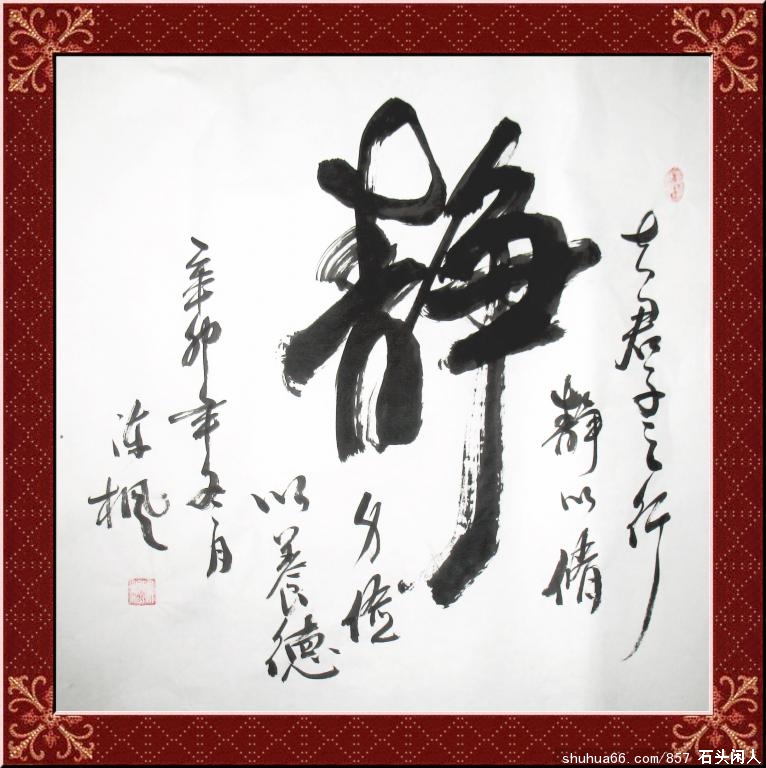 夫君子之行
静以脩
静
身俭
以養德
辛卯年冬月
陈枫
shuhua66.com/857 石头闲人